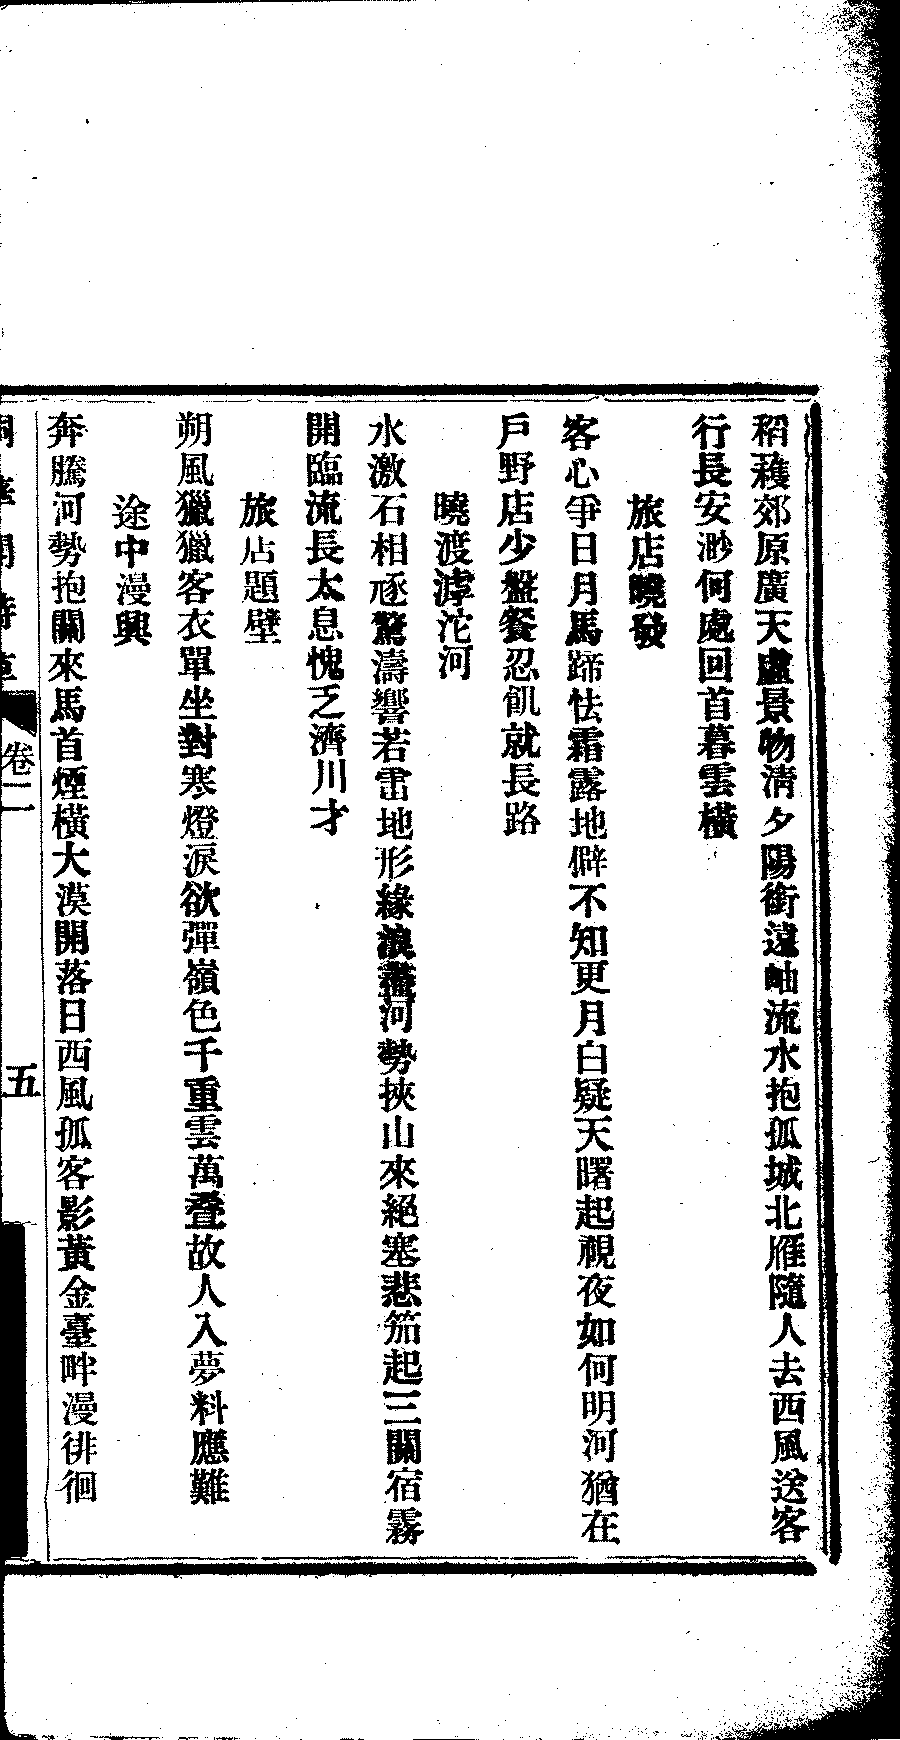 稻穫郊原廣天盧景物淸夕陽銜遠岫流水抱孤城北雁隨人去西風送客
行長安渺何處回首暮雲橫
旅店曉發
客心爭日月馬蹄怯霜露地僻不知更月白疑天曙起視夜如何明河猶在
戶野店少盤餐忍飢就長路
曉渡滹沱河
水激石相逐驚濤響若雷地形緣浪盡河勢挾山來絕塞悲笳起三關宿霧
開臨流長太息愧乏濟川才
旅店題壁
朔風獵獵客衣單坐對寒燈淚欲彈嶺色千重雲萬叠故人入夢料應難
途中漫興
奔騰河勢抱關來馬首煙橫大漠開落日西風孤客影黃金臺畔漫徘徊
卷二
五